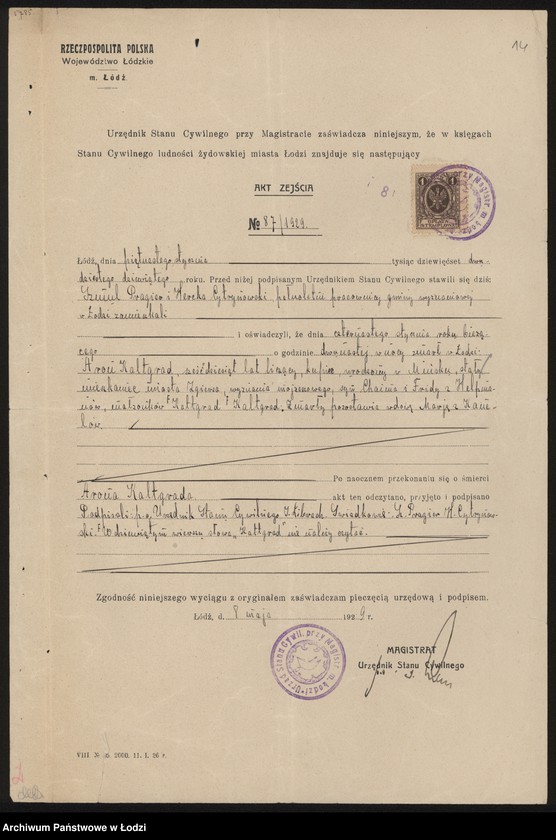 14
RZECZPOSPOLITA POLSKA
Województwo Łódzkie
m. Łódź
Urzędnik Stanu Cywilnego przy Magistracie zaświadcza niniejszym, że w księgach
Stanu Cywilnego ludności żydowskiej miasta Łodzi znajduje się następujący
AKT ZEJŚCIA
№ 87/1929.
Łódź, dnia piętnastego stycznia tysiąc dziewięćset dwu-
dziestego dziewiątego roku. Przed niżej podpisanym Urzędnikiem Stanu Cywilnego stawili się dziś:
Szmul Pragier i Herszka Cytrynowski pełnoletni pracownicy gminy wyznaniowej
w Łodzi zamieszkali
i oświadczyli, że dnia czternastego stycznia roku bieżą-
cego o godzinie dwunastej w nocy zmarł w Łodzi-
Aron Kaltgrad, sześćdziesiąt lat liczący, kupiec, urodzony w Mińsku, stały
mieszkaniec miasta Zgierza, wyznania mojżeszowego, syn Chaima i Frajdy z
małżonków Kaltgrad Kaltgrad. Zmarły pozostawia wdową Marję z
Po naocznem przekonaniu się o śmierci
Arona Kaltgrada akt ten odczytano, przyjęto i podpisano
Podpisali: p.o. Urzędnik Stanu Cywilnego Świadkowie: S. Pragier H. Cytrynow-
ski. W dziewiątym wierszu słowo "Kaltgrad" nie należy czytać.
Zgodność niniejszego wyciągu z oryginałem zaświadczam pieczęcią urzędową i podpisem.
Łódź, d. 8 maja 1929 r.
MAGISTRAT
Urzędnik Stanu Cywilnego
VIII № m. 2000. 11. I. 26 r.
Archiwum Państwowe w Łodzi